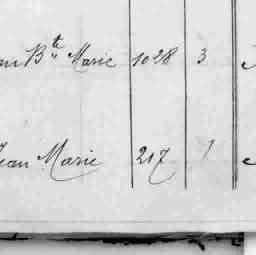 an Bte Marie 1028 3
Jean Marie 217 1